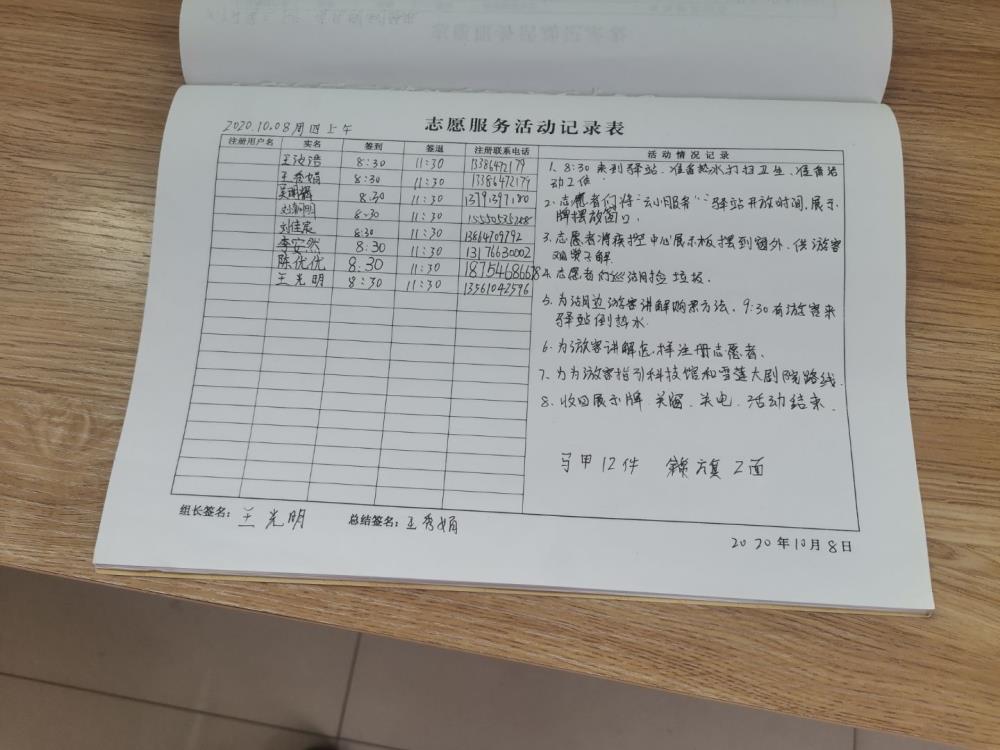 2020.10.08周四上午
志愿服务活动记录表
注册用户名 实名 签到 签退 注册联系电话 活动情况记录
王汝浩 8:30 11:30 13386472179
王秀娟 8:30 11:30 13386472179
吴明辉 8:30 11:30 13791397180
8:30 11:30
刘佳宸 8:30 11:30 13864709792
李安然 8:30 11:30 13176630002
陈优优 8:30 11:30 18754686678
王光明 8:30 11:30 13561042596
1. 8:30 来到驿站.准备热水打扫卫生.准备活
动工作.
2. 志愿者们将"云小服务"驿站开放时间,展示
牌摆放窗口.
3. 志愿者将疾控中心展示板摆到窗外.供游客
观赏了解.
4. 志愿者们巡湖捡垃圾.
5. 为湖边游客讲解购票方法. 9:30有游客来
驿站倒热水.
6. 为游客讲解怎样注册志愿者.
7. 为游客指引科技馆和雪莲大剧院路线.
8. 收回展示牌 关窗 关电. 活动结束.
马甲12件 旗2面
组长签名: 王光明 总结签名: 王秀娟
2020年10月8日